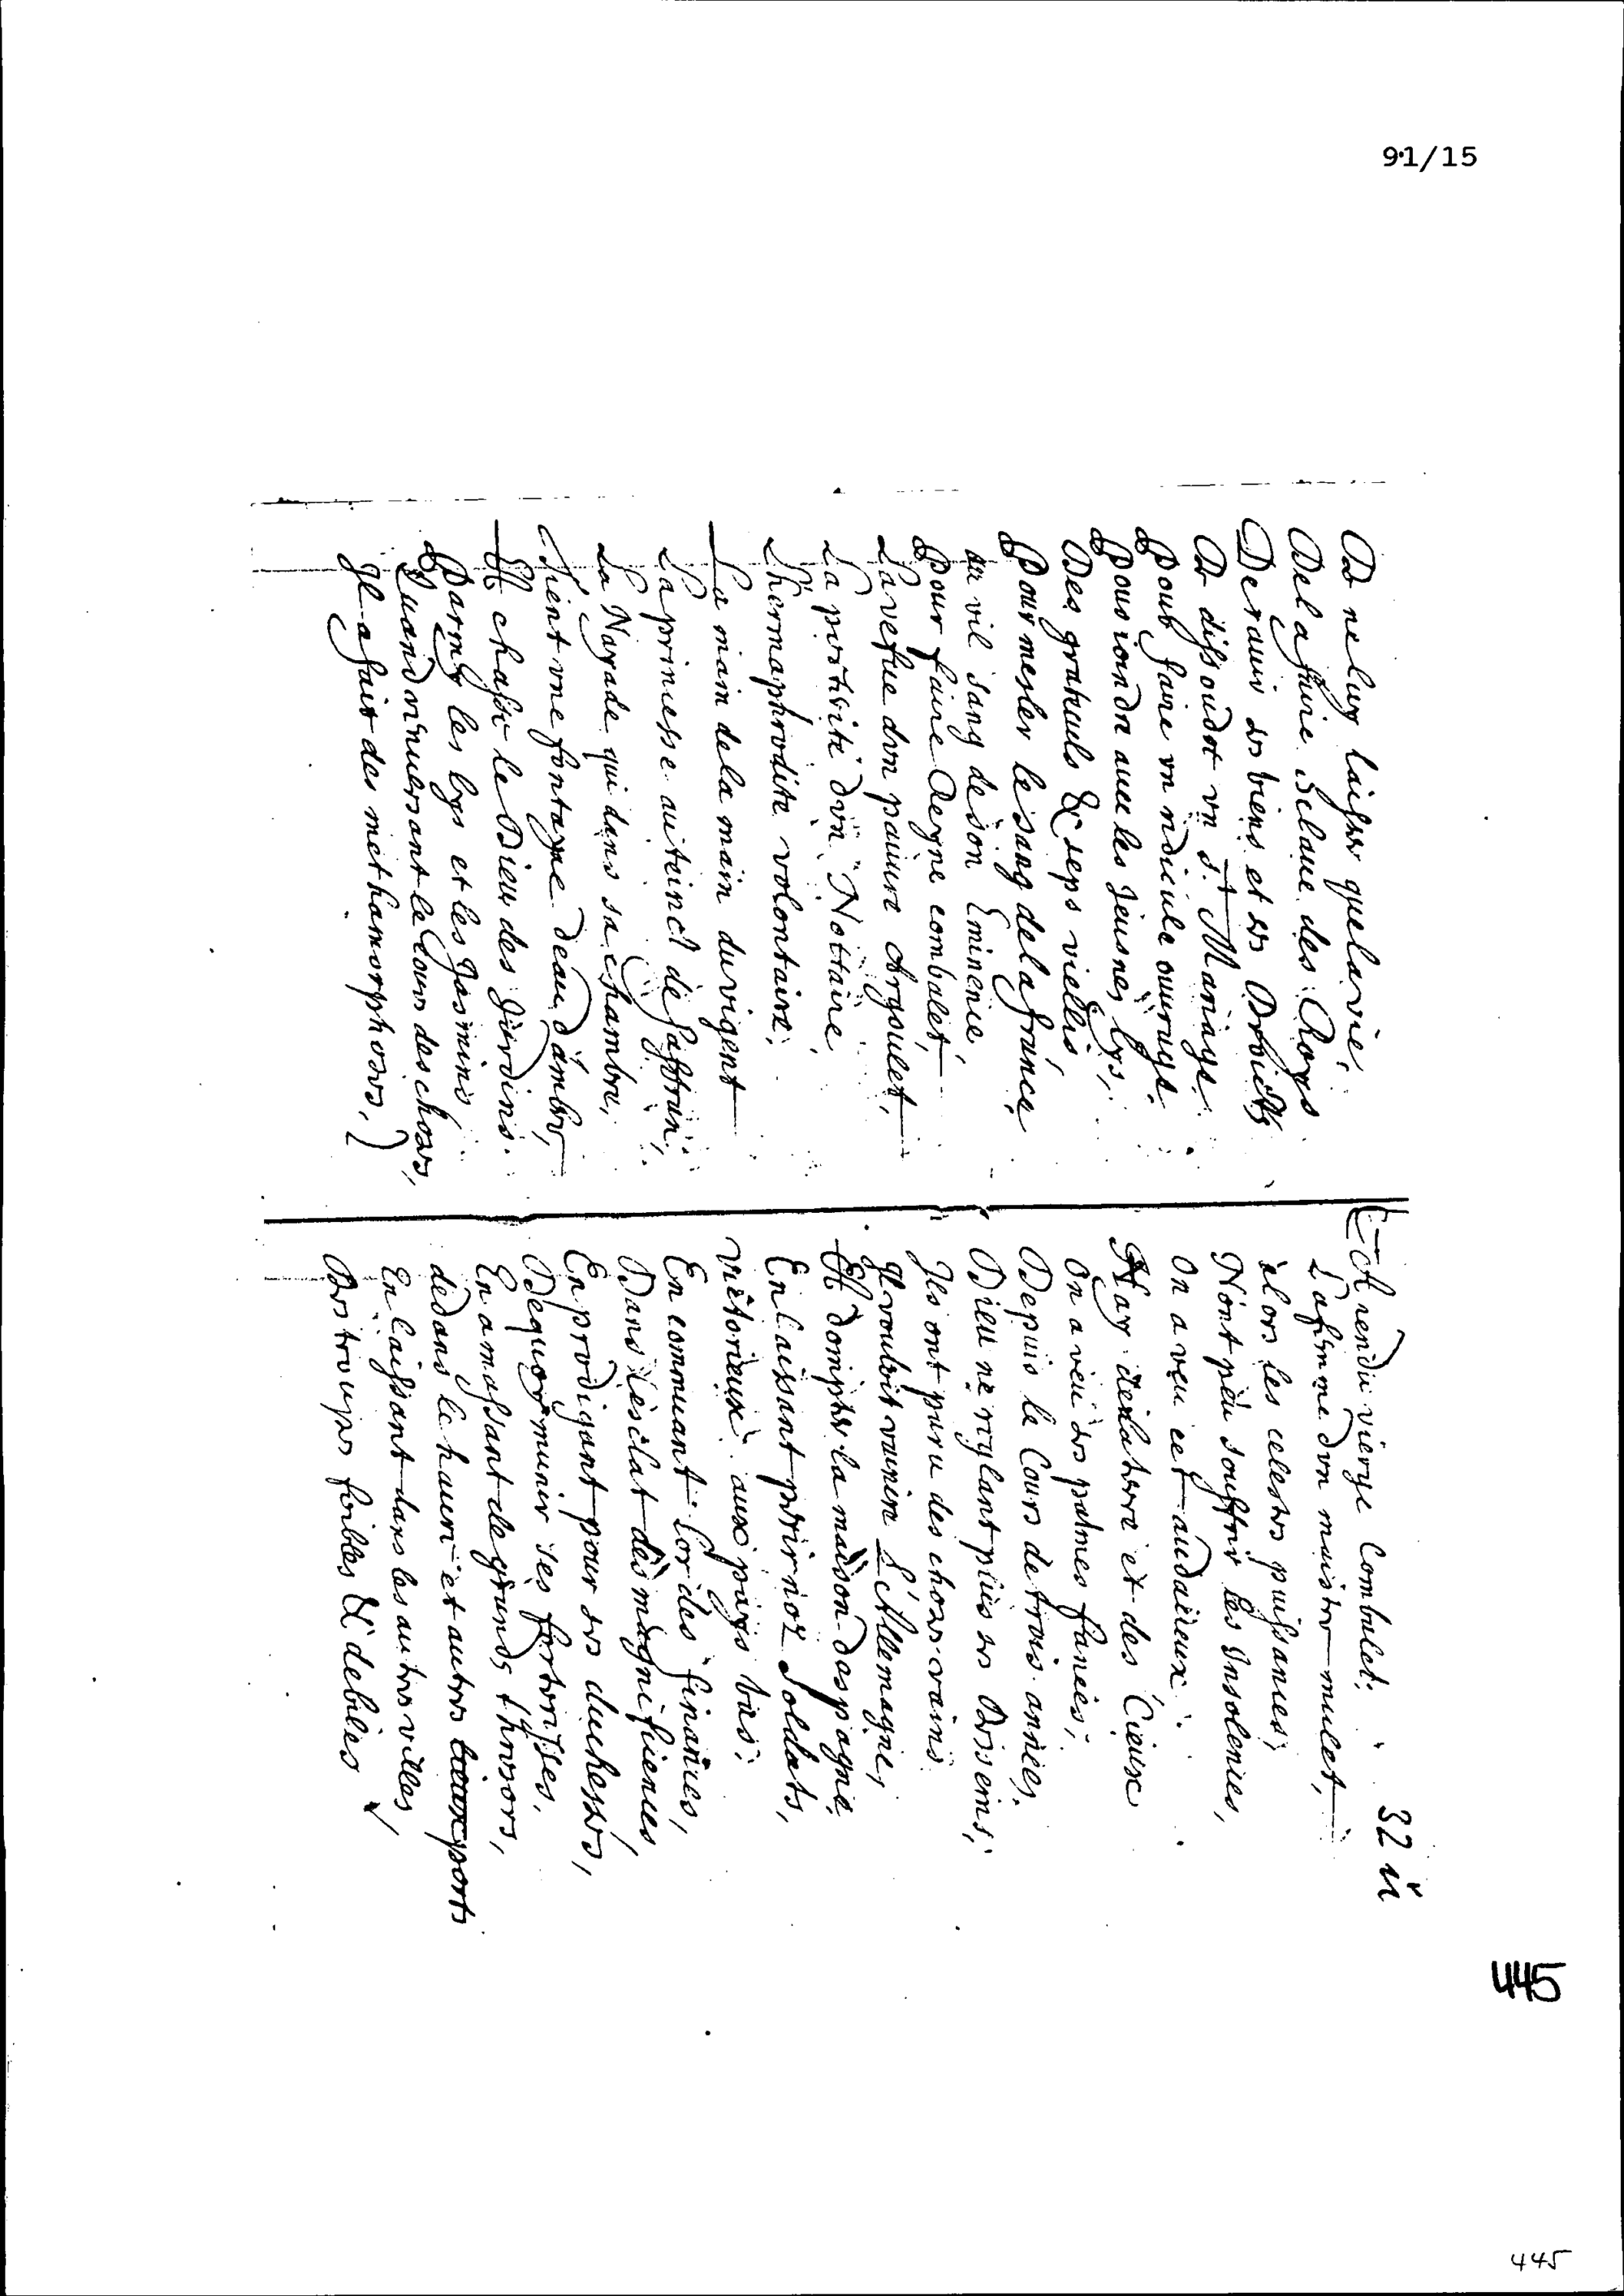 91/15
De ne luy laisser que la vie
De la faire Esclaue des Roys
De rauir ses biens et ses Droicts
De dissoudre vn st. Mariage
Pour faire vn ridicule ouurage
Pour ioindre auec les Jeusnes lys,
Des grateculs & seps viellis
Pour mesler le sang de la france
au vil sang de son Eminence,
Pour faire Reyne combalet,
La vefue dun pauure Argoulet,
La posterité dvn Nottaire
L'hermaphrodite volontaire,
La main de la main du rigent
La princesse au teinct de saffran,
La Nayade qui dans sa chambre,
Tient vne fontayne deau dambre,
Et chasse le Dieu des Jardins
Parmy les lys et les Jasmins
Quand renuersant le Cours des choses,
Il a fait des methamorphoses,
32
A rendu vierge Combalet,
La femme d'un maistre mulet,
alors les celestes puissances,
Nont peu souffrir les Insolences,
On a veu cet audacieux
Hay de la terre et des Cieux
On a veu ses palmes fanées,
Depuis le Cours de trois années,
Dieu ne reglant plus ses Desseins,
Ils ont paru des choses vains
Il vouloit vaincre L'Allemagne,
Et dompter la maison despagne
En laissant perir noz soldats,
victorieux aux pays bas,
En commuant lor des finances,
Dans lesclat des magnificences,
En prodigant pour ses duchesses,
Dequoy munir ses forteresses,
En amassant de grands thresors,
dedans le haure et autres ports
En laissant dans les autres villes,
Des troupes foibles & debiles
445
445